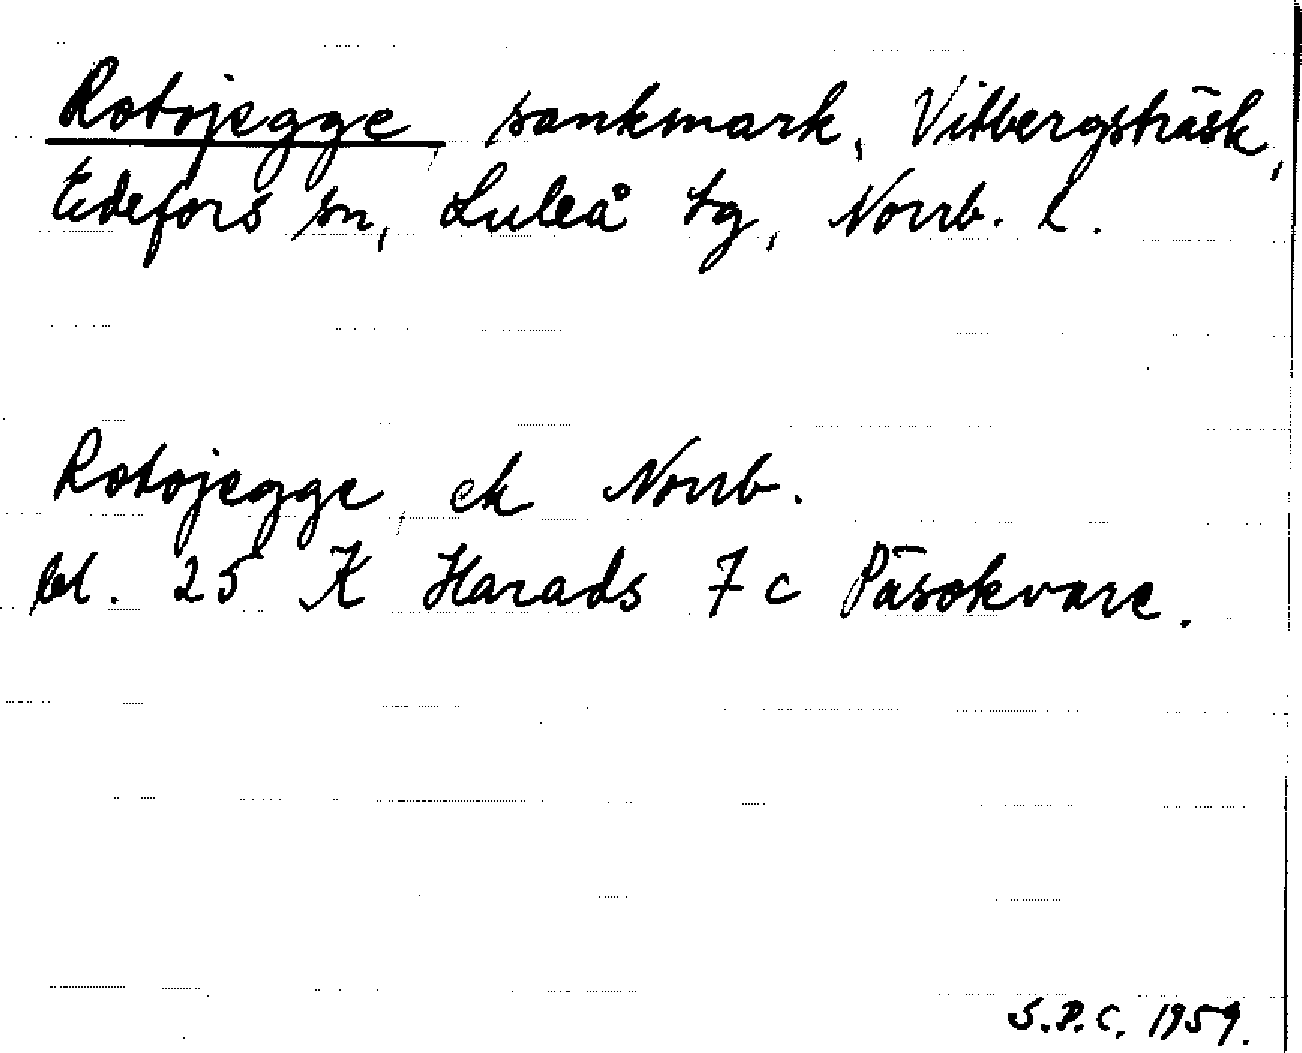 Rotojegge, sankmark, Vitbergsträsk,
Edefors sn, Luleå tg, Norrb. L.
Rotojegge, ek Norrb.
bl. 25 K Harads 7 c Päsokvare.
S.P.C. 1959.